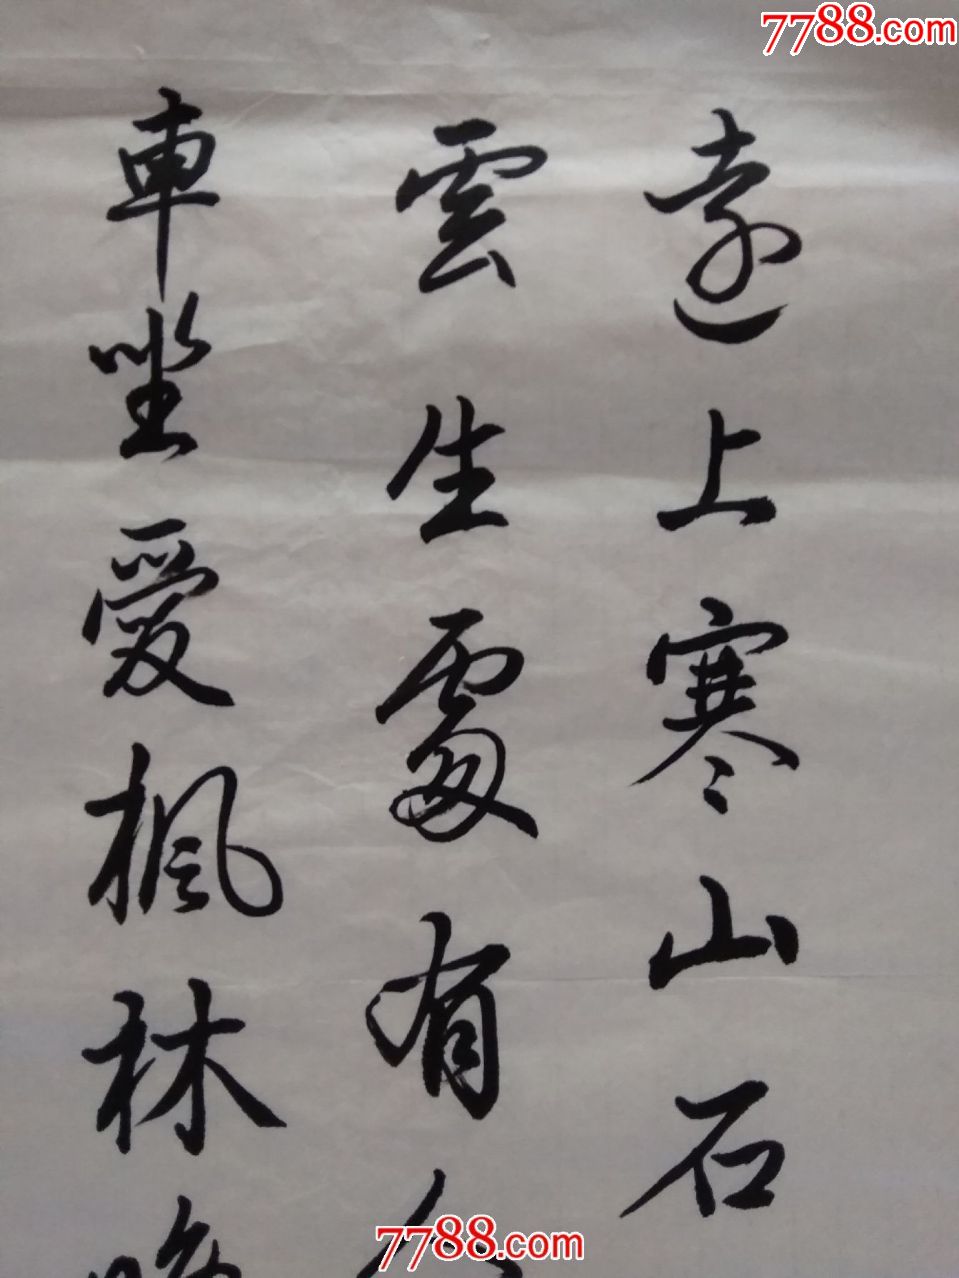 7788.com
遠上寒山石
雲生處有人
車坐愛楓林晚
7788.com